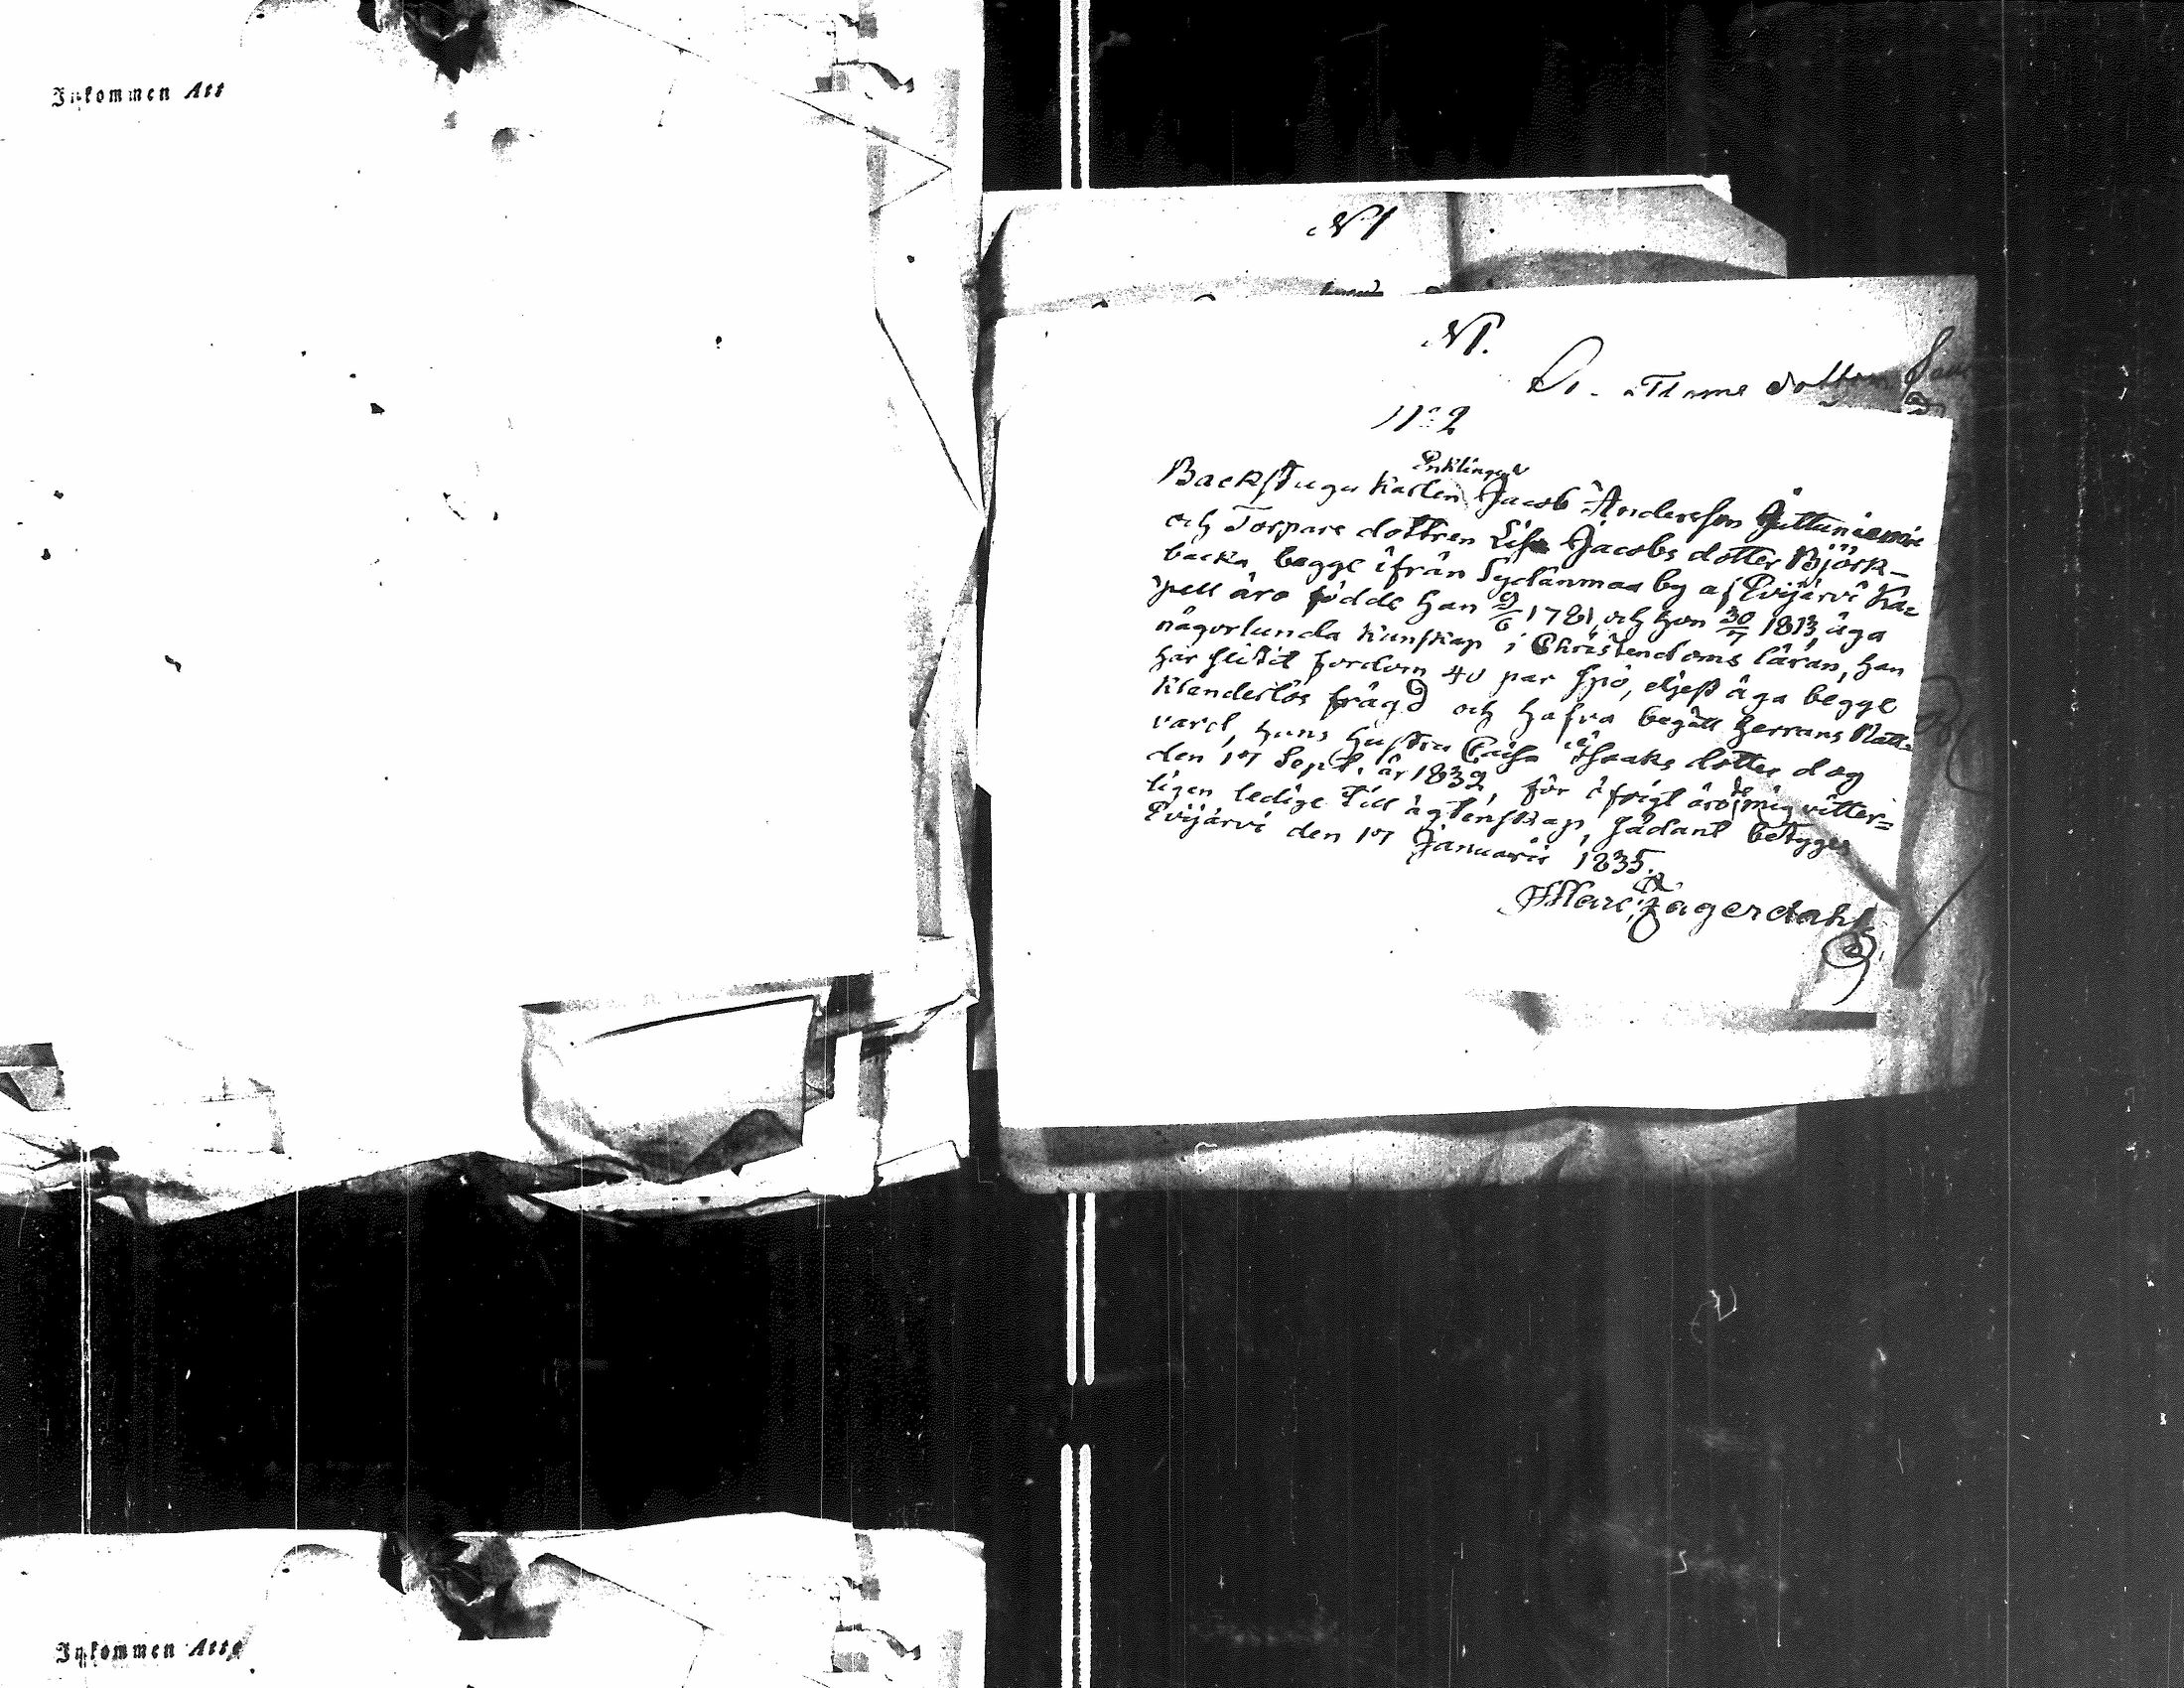 Inkommen Att
N 1
N 1.
N:o 2
Enklingen
Backstugu Karlen Jacob Andersson
och Torpare dottren Lisa Jacobs dotter Björk-
backa, begge ifrån Sydänmaa by af Evijärvi Ka=
pell äro födde han 9/6 1781, och hon 30/7 1813, äga
någorlunda kunskap i Christendoms läran, han
har slitit fordom 40 par spö, eljest äga begge
klanderlös frägd och hafva begått Herrans Natt-
vard, hans hustru Caisa Isaaks dotter dog
den 17 Sept. år 1832, för öfrigt äro de mig vitter=
ligen ledige till ägtenskap, sådant betygas
Evijärvi den 17 Januarii 1835.
Lagerdahl
Inkommen Att